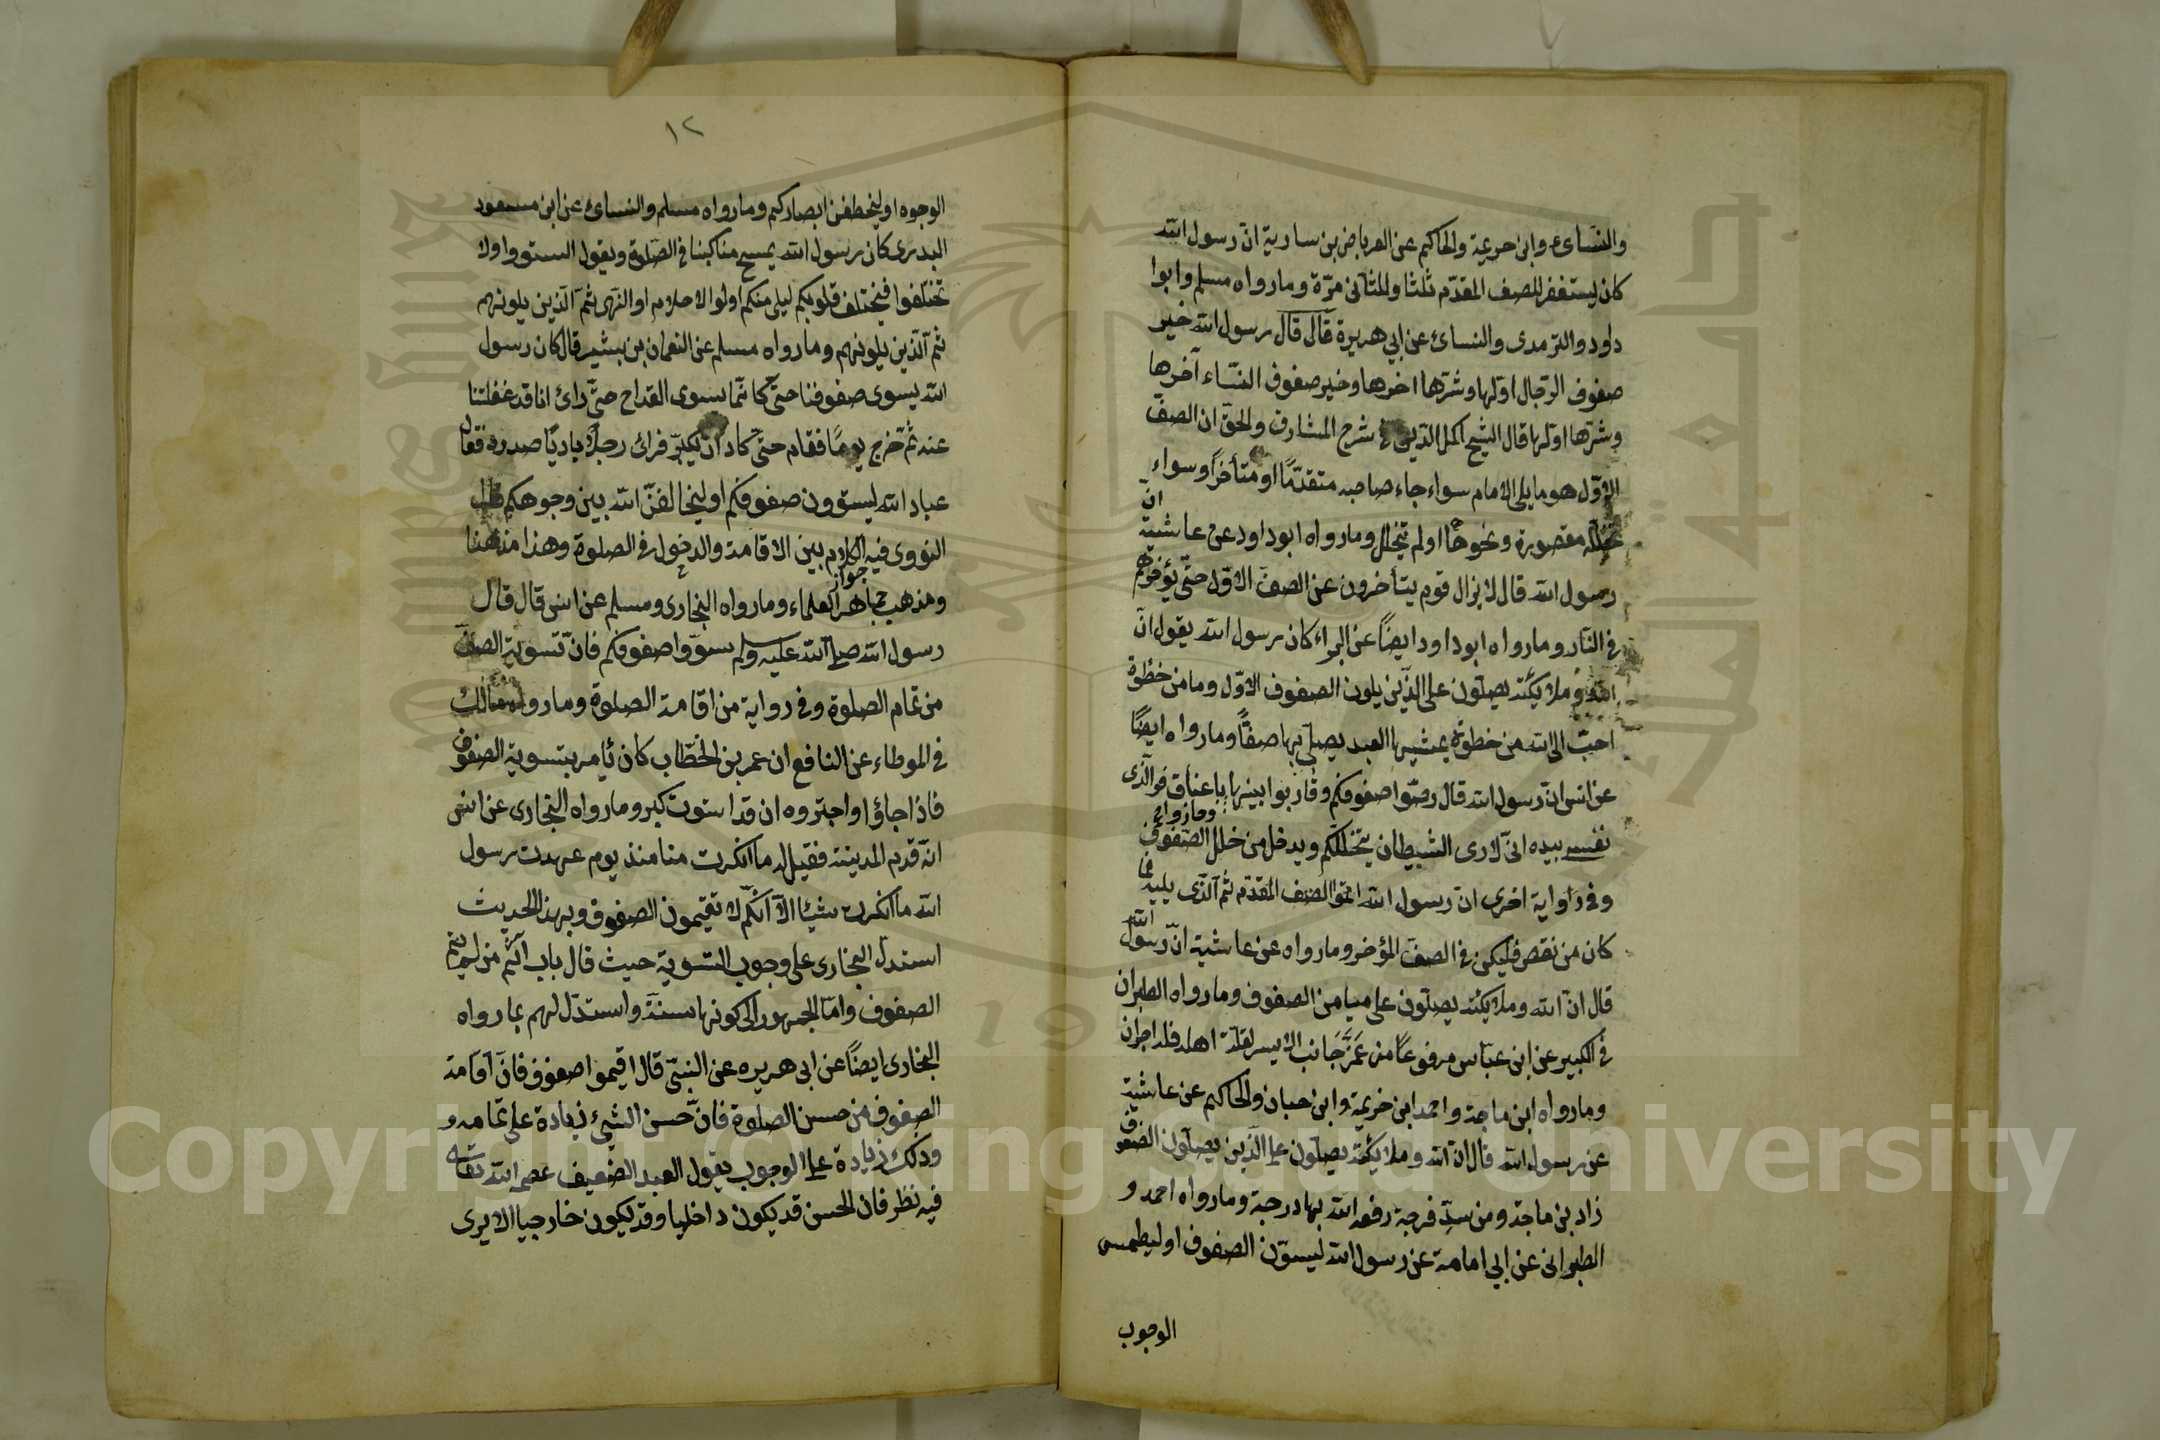 والنسائ وابن حريمة والحاكم عن العرباض بن سارية ان رسول الله
كان يستغفر للصف المقدم ثلثا وللثانى مرّة ومارواه مسلم وابوا
داود والترمدى والنسائ عن ابي هريرة قال قال رسول الله خير
صفوف الرجال اوّلها وشرّها اخرها وخير صفوف النساء آخرها
وشرّها اوّلها قال الشيخ اكمل الدين فى شرح المشارق والحق ان الصفّ
الاوّل هو ما يلى الامام سواء جاء صاحبه متقدّمًا او متأخرًا وسواء
تخلّله مقصورة ونحوها او لم يتخلل ومارواه ابوداود عن عائشة انّ
رسول الله قال لا يزال قوم يتأخرون عن الصفّ الاوّل حتّى يؤخرهم
فى النار ومارواه ابوداود ايضًا عن البراء كان رسول الله يقول انّ
الله وملايكته يصلّون على الذين يلون الصفوف الاوّل وما من خطوة
احبّ الى الله من خطوة يمشيها العبد يصلى بها صفًّا ومارواه ايضًا
عن انس انّ رسول الله قال رصّوا صفوفكم وقاربوا بينها باعناق فوالّذى
نفسى بيده انى لارى الشيطان يتخللكم ويدخل من خلل الصّفوف ومارواه
وفى رواية اخرى ان رسول الله اتموا الصف المقدم ثم الّذى يليه فما
كان من نقص فليكن فى الصفّ المؤخر ومارواه عن عائشة انّ رسول الله
قال انّ الله وملايكته يصلّون على ميامن الصفوف ومارواه الطبران
فى الكبير عن ابن عبّاس مرفوعًا من عَمَّرَ جَانب الايسر لقلّة اهله فله اجران
ومارواه ابن ماجة واحمد ابن خريمة وابن حبان والحاكم عن عائشة
عن رسول الله قال انّ الله وملايكته يصلّون على الّذين يصلّون الصّفوف
زاد بن ماجة ومن سدّ فرجة رفعه الله بها درجة ومارواه احمد و
الطبرانى عن ابي امامة عن رسول الله ليسوّن الصفوف او ليطمس
الوجوب
١٢
الوجوه او ليخطفن ابصاركم ومارواه مسلم والنسائ عن ابن مسعود
البدرى كان رسول الله يمسح مناكبنا فى الصّلوة ويقول استووا ولا
تختلفوا فيختلف قلوبكم ليلى منكم اولوا الاحلام او النهى ثمّ الّذين يلونهم
ثم الّذين يلونهم ومارواه مسلم عن النعمان بن بشير قال كان رسول
الله يسوى صفوفنا حتّى كانّما يسوى القداح حتّى رائ انا قد غفلنا
عنه ثمّ خرج يومًا فقام حتّى كاد ان يكبّر فرائ رجلًا باديًا صدره فقال
عباد الله ليستوون صفوفكم او ليخالفنّ الله بين وجوهكم قال
النووى فيه جواز الكلام بين الاقامة والدخول فى الصلوة وهذا مذهبنا
ومذهب جماهير العلماء ومارواه البخارى ومسلم عن انس قال قال
رسول الله صلى الله عليه وسلم سوّوا صفوفكم فانّ تسوية الصفّ
من تمام الصلوة وفى رواية من اقامة الصلوة ومارواه مالك
فى الموطاء عن النافع ان عمر بن الخطّاب كان يأمر بتسوية الصفوف
فاذا جاؤا واخبروه ان قد استوت كبر ومارواه البخارى عن انس
انّه قدم المدينة فقيل له ما انكرت منا منذ يوم عهدت رسول
الله ما انكرت شيئا الّا انّكم لا تقيمون الصفوف وبهذا الحديث
استدلّ البخارى على وجوب التسوية حيث قال باب اثم من لم يتم
الصفوف وامّا الجمهور الى كونها سنّة واستدلّ لهم بمارواه
البخارى ايضًا عن ابى هريره عن النبىّ قال اقيموا صفوف فانّ اقامة
الصفوف من حسن الصلوة فانّ حسن الشئ زيادة على تمامه و
وذلك زيادة على الوجوب يقول العبد الضعيف عصم الله تعالى
فيه نظر فان الحسن قد يكون داخليا وقد يكون خارجيا الا يرى